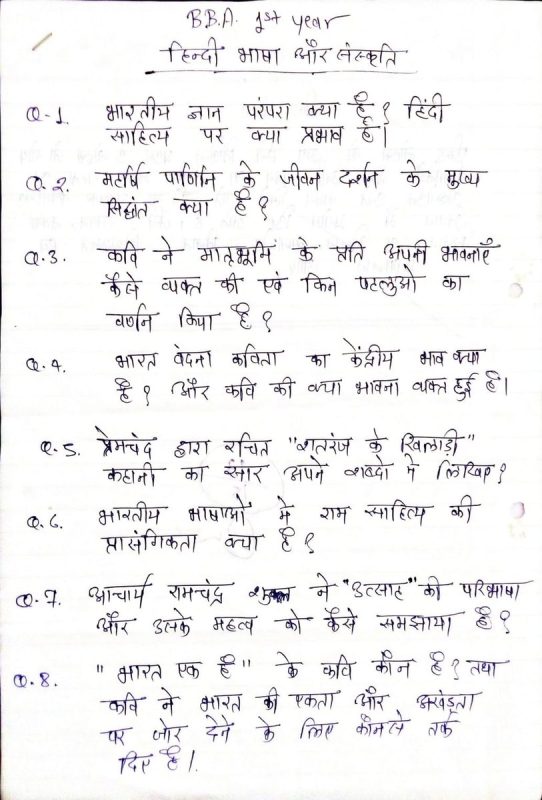 B.B.A. 1st year
हिन्दी भाषा और संस्कृति
Q-1. भारतीय ज्ञान परंपरा क्या है? हिंदी
साहित्य पर क्या प्रभाव है।
Q.2. महर्षि पाणिनि के जीवन दर्शन के मुख्य
सिद्धांत क्या है?
Q.3. कवि ने मातृभूमि के प्रति अपनी भावनाएँ
कैसे व्यक्त की एवं किन पहलुओ का
वर्णन किया है?
Q.4. भारत वंदना कविता का केंद्रीय भाव क्या
है? और कवि की क्या भावना व्यक्त हुई है।
Q.5. प्रेमचंद द्वारा रचित "शतरंज के खिलाड़ी"
कहानी का सार अपने शब्दो मे लिखिए?
Q.6. भारतीय भाषाओं मे राम साहित्य की
प्रासंगिकता क्या है?
Q.7. आचार्य रामचंद्र शुक्ल ने "उत्साह" की परिभाषा
और उसके महत्व को कैसे समझाया है?
Q.8. "भारत एक है" के कवि कौन है? तथा
कवि ने भारत की एकता और अखंडता
पर जोर देने के लिए कौनसे तर्क
दिए है।